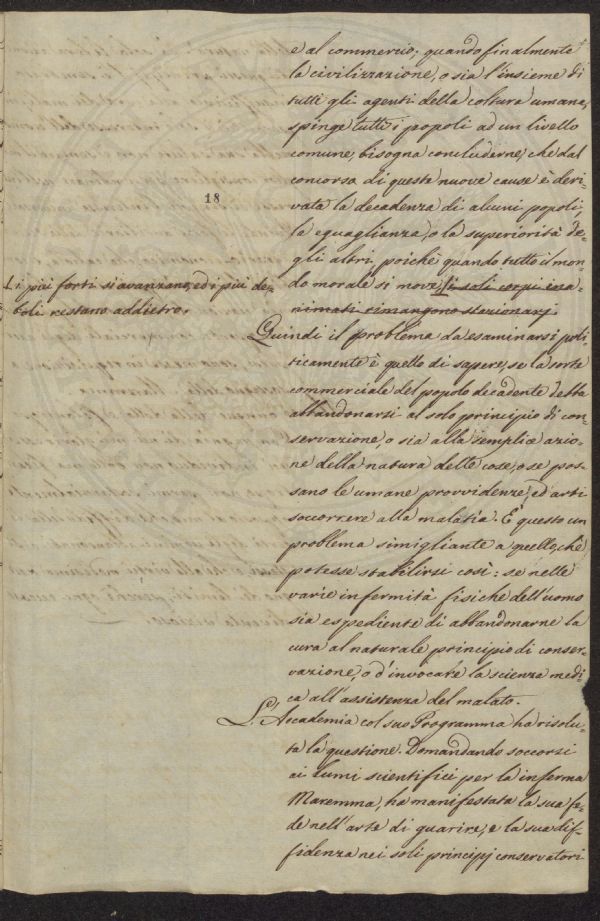 e al commercio; quando finalmente
la civilizzazione, o sia l'insieme di
tutti gli agenti della coltura umana,
spinge tutti i popoli ad un livello
comune, bisogna concluderne, che dal
concorso di queste nuove cause è deri-
vata la decadenza di alcuni popoli,
la eguaglianza, o la superiorità de-
gli altri, poichè quando tutto il mon-
do morale si move, li soli corpi ina-
nimati rimangono stazionarj.
18
L i più forti si avanzano, ed i più de-
boli restano addietro.
Quindi il problema da esaminarsi poli-
ticamente è quello di sapere, se la sorte
commerciale del popolo decadente debba
abbandonarsi al solo principio di con-
servazione, o sia alla semplice azio-
ne della natura delle cose, o se pos-
sano le umane provvidenze, ed arti
soccorrere alla malatia. È questo un
problema simigliante a quello, che
potesse stabilirsi così: se nelle
varie infermità fisiche dell'uomo
sia espediente di abbandonarne la
cura al naturale principio di conser-
vazione, o d'invocare la scienza medi-
ca all'assistenza del malato.
L'Accademia col suo Programma ha risolu-
ta la questione. Domandando soccorsi
ai lumi scientifici per la inferma
Maremma, ha manifestata la sua fe-
de nell'arte di guarire, e la sua dif-
fidenza nei soli principj conservatori